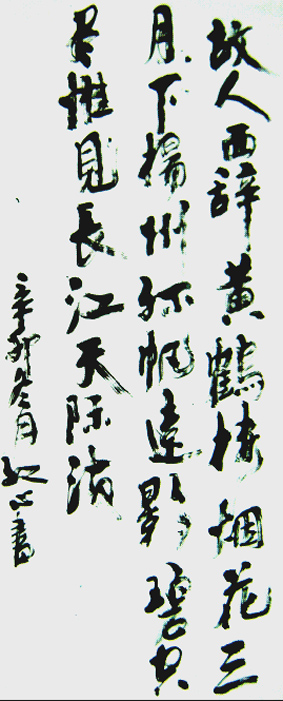 故人西辞黄鶴楼烟花三
月下揚州孤帆遠影碧空
尽惟見長江天际流
辛卯冬月红心書